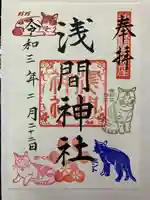 奉拝
浅間神社
令和三年二月二十二日